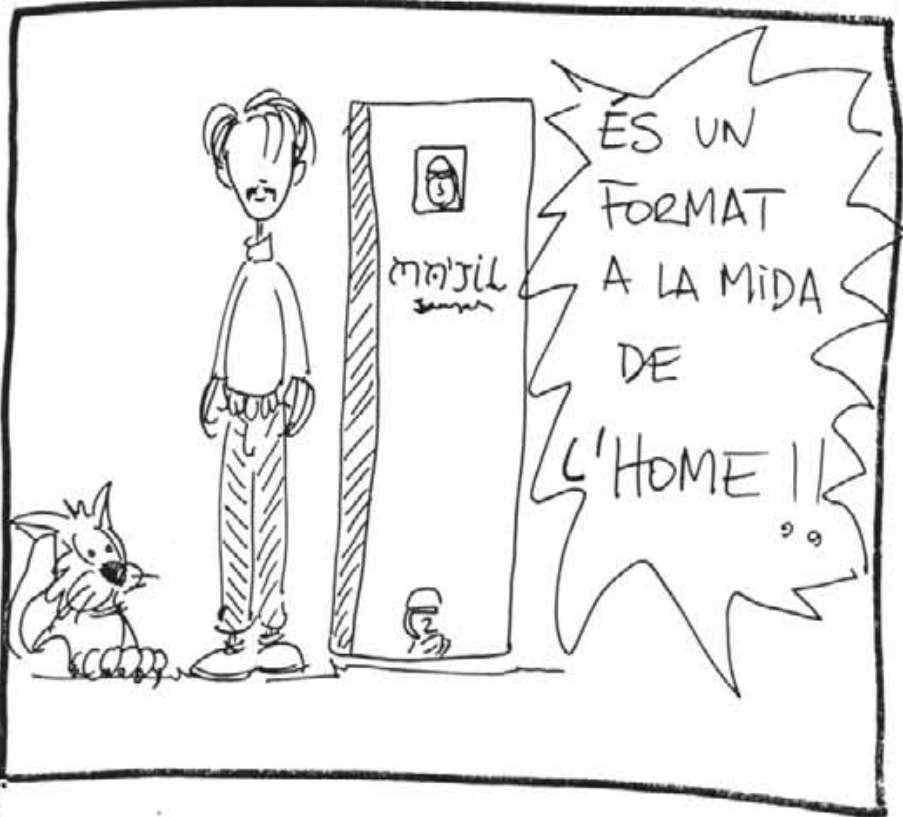 ÉS UN
FORMAT
A LA MIDA
DE
L'HOME !!